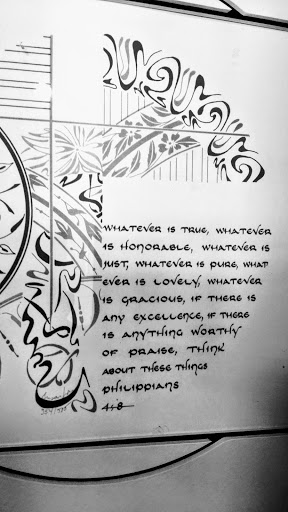 WHATEVER IS TRUE, WHATEVER
IS HONORABLE, WHATEVER IS
JUST, WHATEVER IS PURE, WHAT
EVER IS LOVELY, WHATEVER
IS GRACIOUS, IF THERE IS
ANY EXCELLENCE, IF THERE
IS ANYTHING WORTHY
OF PRAISE, THINK
ABOUT THESE THINGS
PHILIPPIANS
4:8